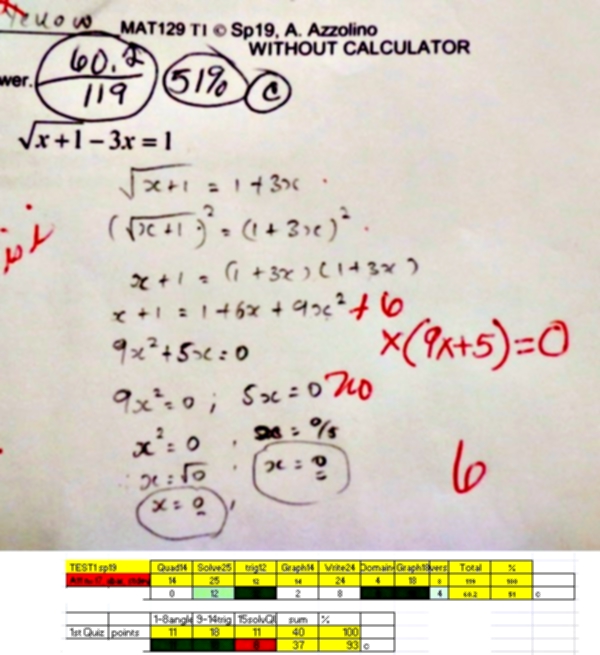 Yellow
MAT129 T1 © Sp19, A. Azzolino
WITHOUT CALCULATOR
wer. 60.2/119 51% C
√x+1 − 3x = 1
√x+1 = 1 + 3x
(√x+1)² = (1 + 3x)²
x + 1 = (1 + 3x)(1 + 3x)
x + 1 = 1 + 6x + 9x² + 6
x(9x+5)=0
9x² + 5x = 0
9x² = 0 ; 5x = 0 no
x² = 0 , x = 0/5
x = √0 , x = 0
x = 0 ,
6
TEST1 sp19 Quad14 Solve25 trig12 Graph14 Write24 Domain Graph18 vers Total %
14 25 12 14 24 4 18 8 119 100
0 12 2 8 4 60.2 51 c
1-8angle 9-14trig 15solvQ sum %
1st Quiz points 11 18 11 40 100
37 93 c